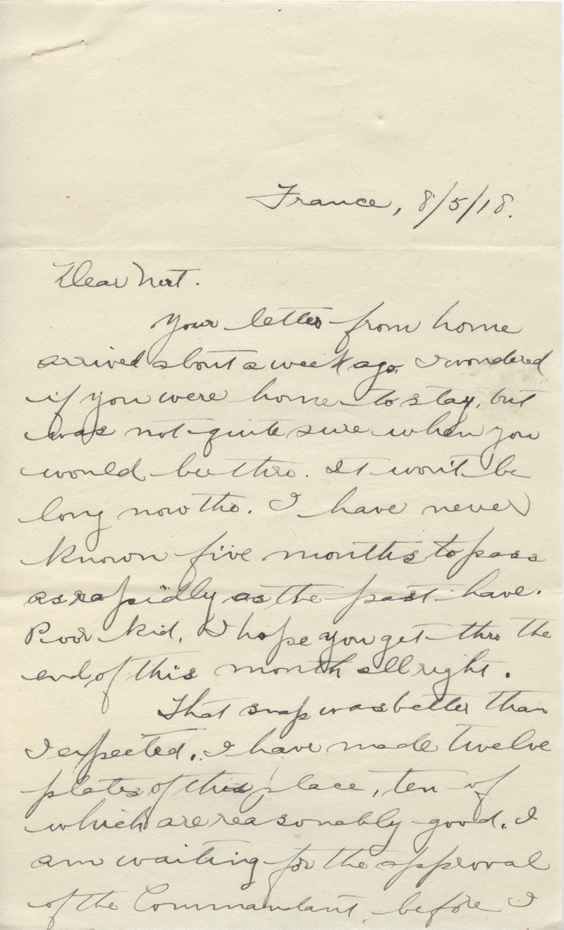 France, 8/5/18.
Dear Nert.
Your letter from home
arrived about a week ago. I wondered
if you were home to stay, but
was not quite sure when you
would be thro. It won't be
long now tho. I have never
known five months to pass
as rapidly as the past have.
Poor kid, I hope you get thro the
end of this month all right.
That snap was better than
I expected. I have made twelve
plates of this place, ten of
which are reasonably good. I
am waiting for the approval
of the Commandant, before I